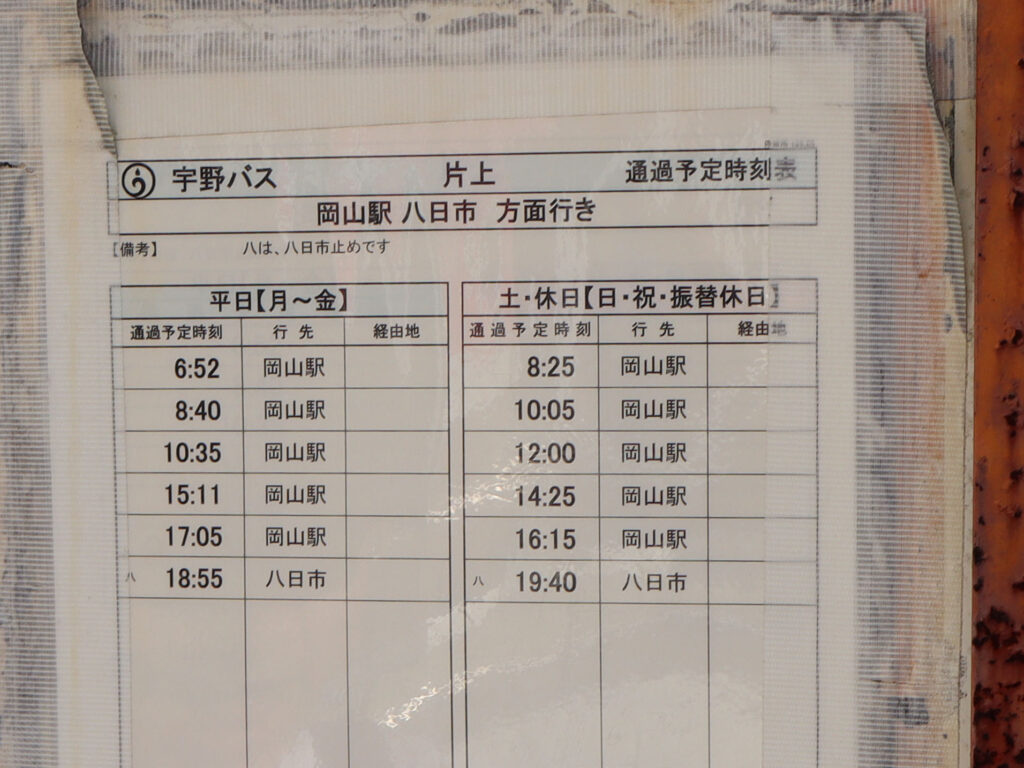 宇野バス 片上 通過予定時刻表
岡山駅 八日市 方面行き
【備考】 八は、八日市止めです
平日【月～金】 土・休日【日・祝・振替休日】
通過予定時刻 行先 経由地 通過予定時刻 行先 経由地
6:52 岡山駅 8:25 岡山駅
8:40 岡山駅 10:05 岡山駅
10:35 岡山駅 12:00 岡山駅
15:11 岡山駅 14:25 岡山駅
17:05 岡山駅 16:15 岡山駅
八 18:55 八日市 八 19:40 八日市